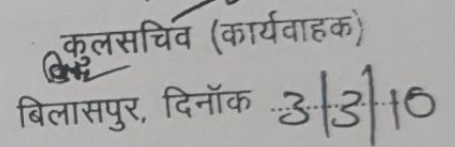 कुलसचिव (कार्यवाहक)
बिलासपुर, दिनॉक 3/3/10